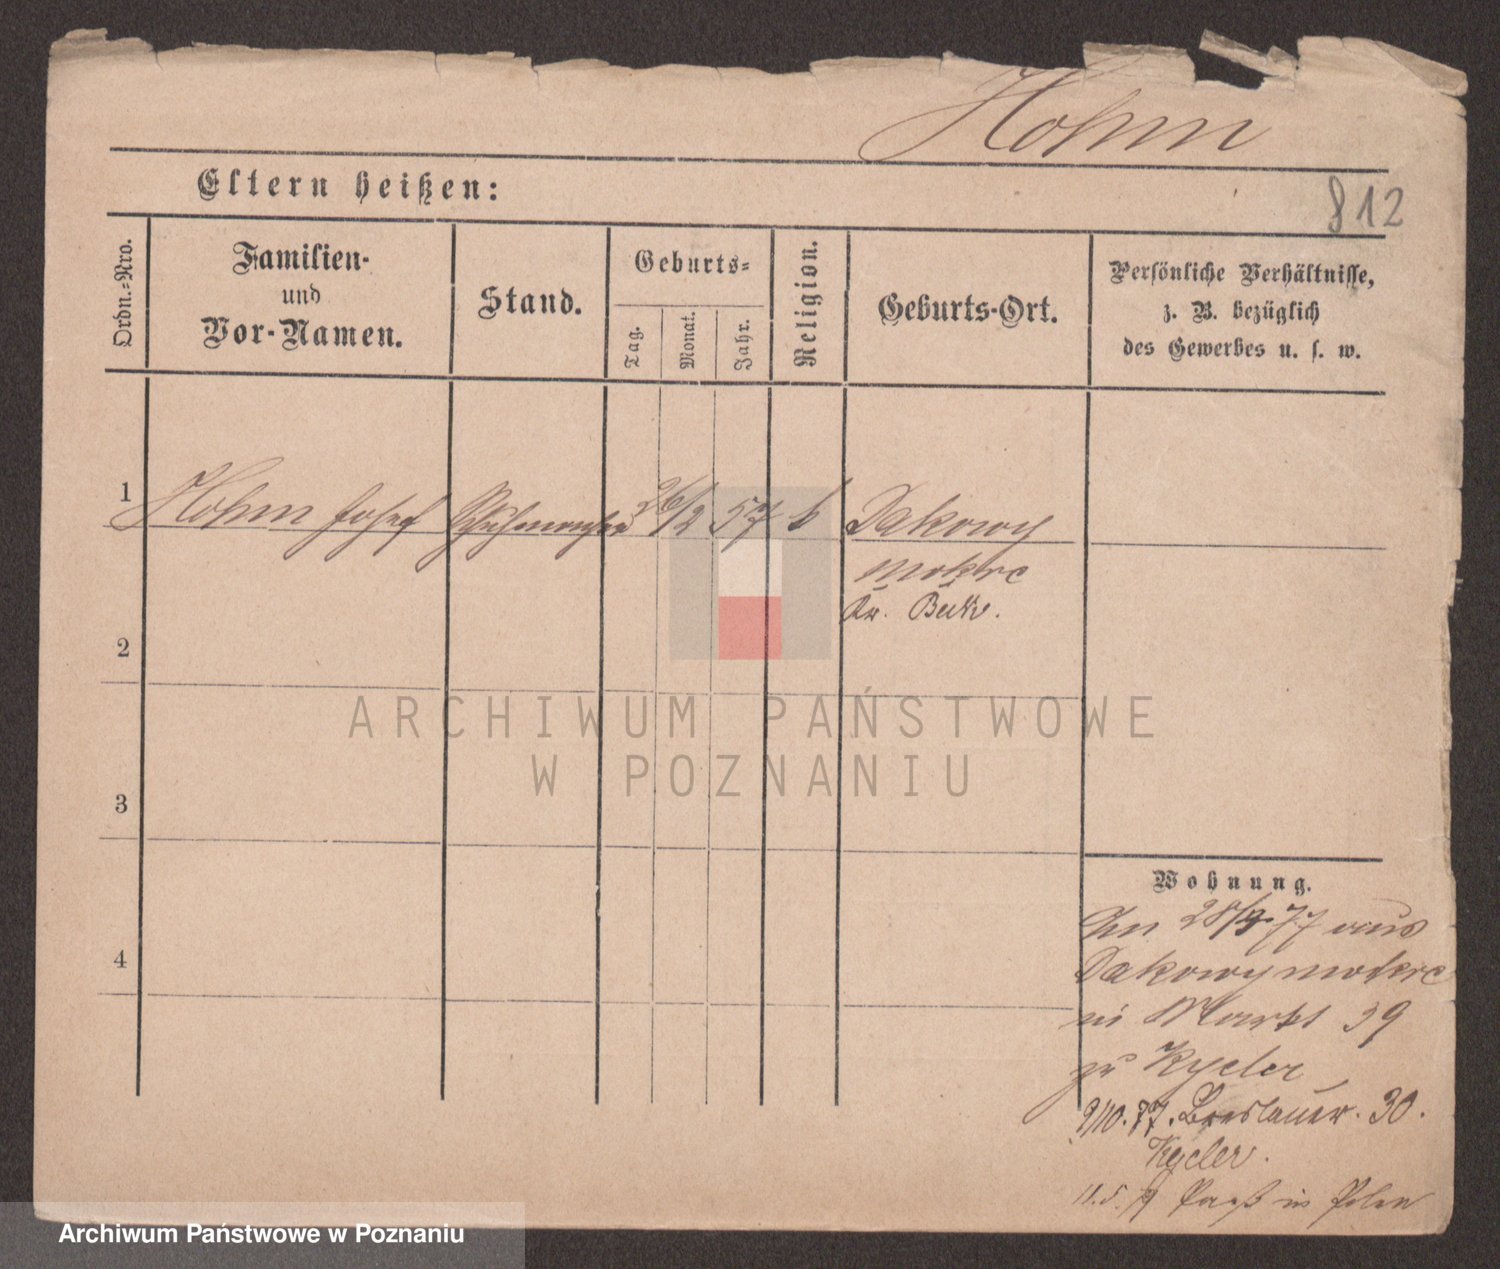 Hohm
812
Eltern heißen:
Ordn.-Nro.
Familien-
und
Vor-Namen.
Stand.
Geburts-
Tag.
Monat.
Jahr.
Religion.
Geburts-Ort.
Persönliche Verhältnisse,
z. B. bezüglich
des Gewerbes u. s. w.
1 Hohm Josef Schuhmacher 26/2 57 k Dakowy
mokre
Kr. Buk.
2
3
4
Wohnung.
28/9. 77 aus
Dakowymokre
in Markt 39
zu
9/10. 77. Breslauer. 30.
11.5. Paß in Polen
ARCHIWUM PAŃSTWOWE
W POZNANIU
Archiwum Państwowe w Poznaniu